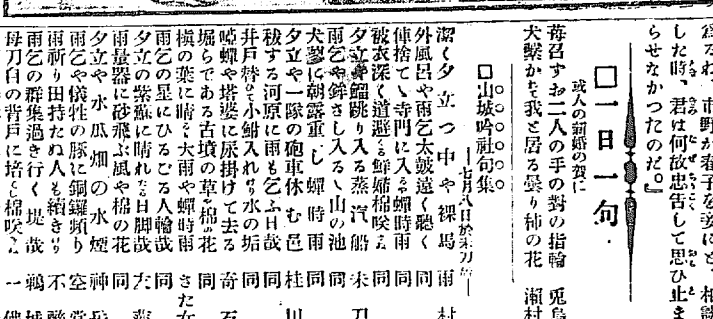 した時、君は何故忠告して思ひ止ま
らせなかつたのだ。』
□一日一句
或人の新婚の賀に
苺召すお二人の手の對の指輪 兎島
犬繋かせ我と居る曇り柿の花 瀬村
□山城吟社句集
潔く夕立つ中や裸馬 雨村
外風呂や雨乞太鼓遠く聽く 同
俥捨てゝ寺門に入るや蟬時雨 同
被衣深く道避る鮮婦棉咲 同
夕立や鰡跳り入る蒸汽船 朱刀
雨乞や鉾さし入るゝ山の池 同
犬谬に朝露重し蟬時雨 同
夕立や一隊の砲車休む邑 桂川
祓する河原に雨も乞ふ日哉 同
井戸替や小鮒入れ水の垢 同
啞蟬や塔婆に尿掛けて去る 奇石
堀らである古墳の草や棉の花 同
槇の葉に晴るゝ大雨や蟬時雨 さた女
雨乞の星にひろごる人輪哉 同
夕立の紫蘇に晴れたる日脚哉 左
雨量器に砂飛ぶ風や棉の花 同
夕立や水瓜畑の水煙 神
雨乞や犠牲の豚に銅鑼頻り 空
雨祈り田持たぬ人も續きけり 不
雨乞の群集過き行く堤哉 鵜
母刀自の背戸に培し棉咲 一